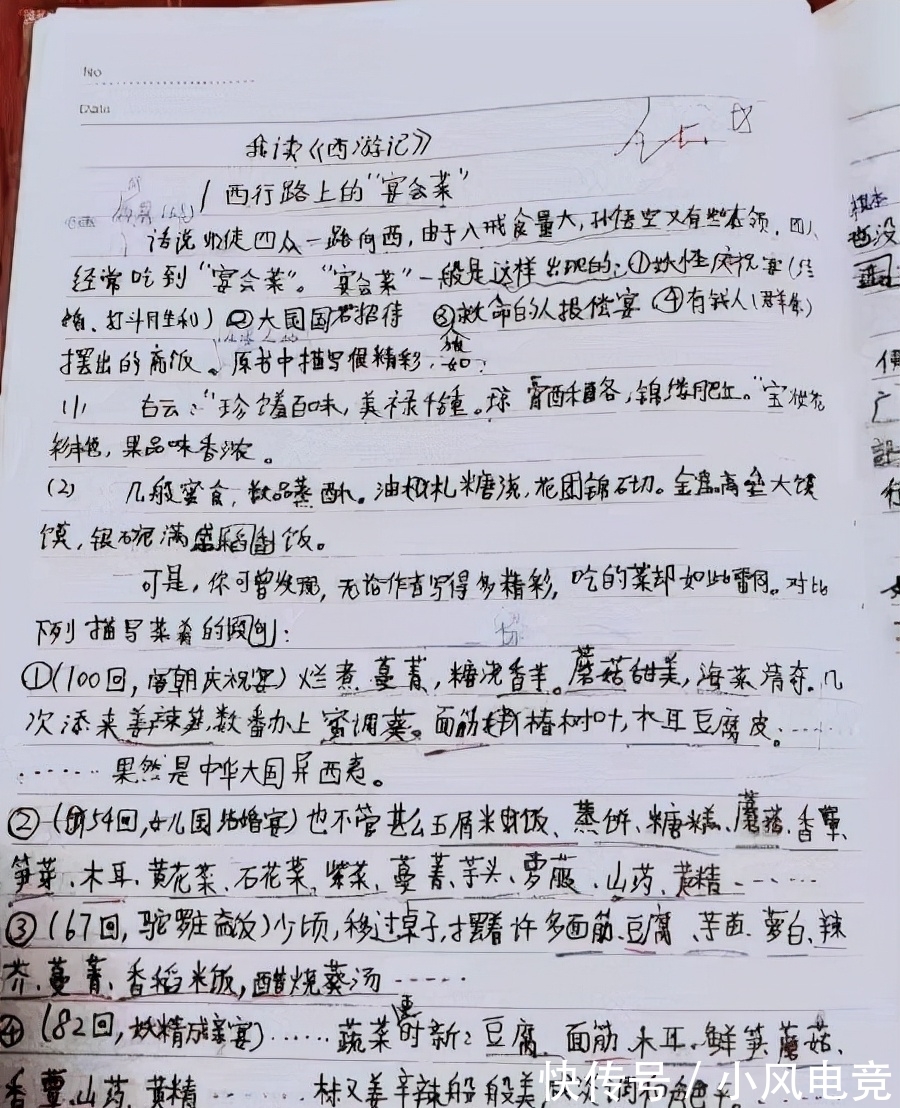 No
Date
我读《西游记》
西行路上的"宴会菜"
话说师徒四众一路向西,由于八戒食量大,孙悟空又有些本领,四人
经常吃到"宴会菜"。"宴会菜"一般是这样出现的:①妖怪庆祝宴(结
婚、打斗胜利)②大国国君招待 ③救命的人报偿宴 ④有钱人(群众)
摆出的斋饭。原书中描写很精彩,如:
(1) 右云:"珍馐百味,美禄千锺。琼膏酥酪,锦缕肥红。"宝妆花
彩艳,果品味香浓。
(2) 几般蜜食,数品蒸酥。油札糖浇,花团锦砌。金盘高垒大馍
馍,银碗满盛稻香饭。
可是,你可曾发现,无论作者写得多精彩,吃的菜却如此雷同。对比
下列描写菜肴的
①(100回,唐朝庆祝宴)烂煮蔓菁,糖浇香芋。蘑菇甜美,海菜清奇。几
次添来姜辣笋,数番办上蜜调葵。面筋椿树叶,木耳豆腐皮。……
……果然是中华大国异西夷。
②(第54回,女儿国结婚宴)也不管甚么玉屑米饭、蒸饼、糖糕、蘑菇、香蕈、
笋芽、木耳、黄花菜、石花菜、紫菜、蔓菁、芋头、萝菔、山药、黄精……
③(67回,驼罗庄斋饭)少顷,移过桌子,摆着许多面筋、豆腐、芋苗、萝白、辣
芥、蔓菁、香稻米饭,醋烧葵汤……
④(82回,妖精成亲宴)……蔬菜更时新:豆腐、面筋、木耳、鲜笋、蘑菇、
香蕈、山药、黄精……林又姜辛辣般般美,
快传号/小风电竞